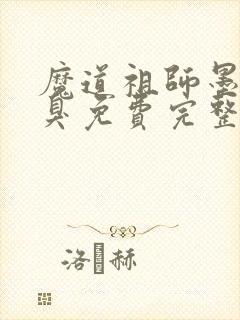 魔道祖師墨
臭免費完整
洛赫